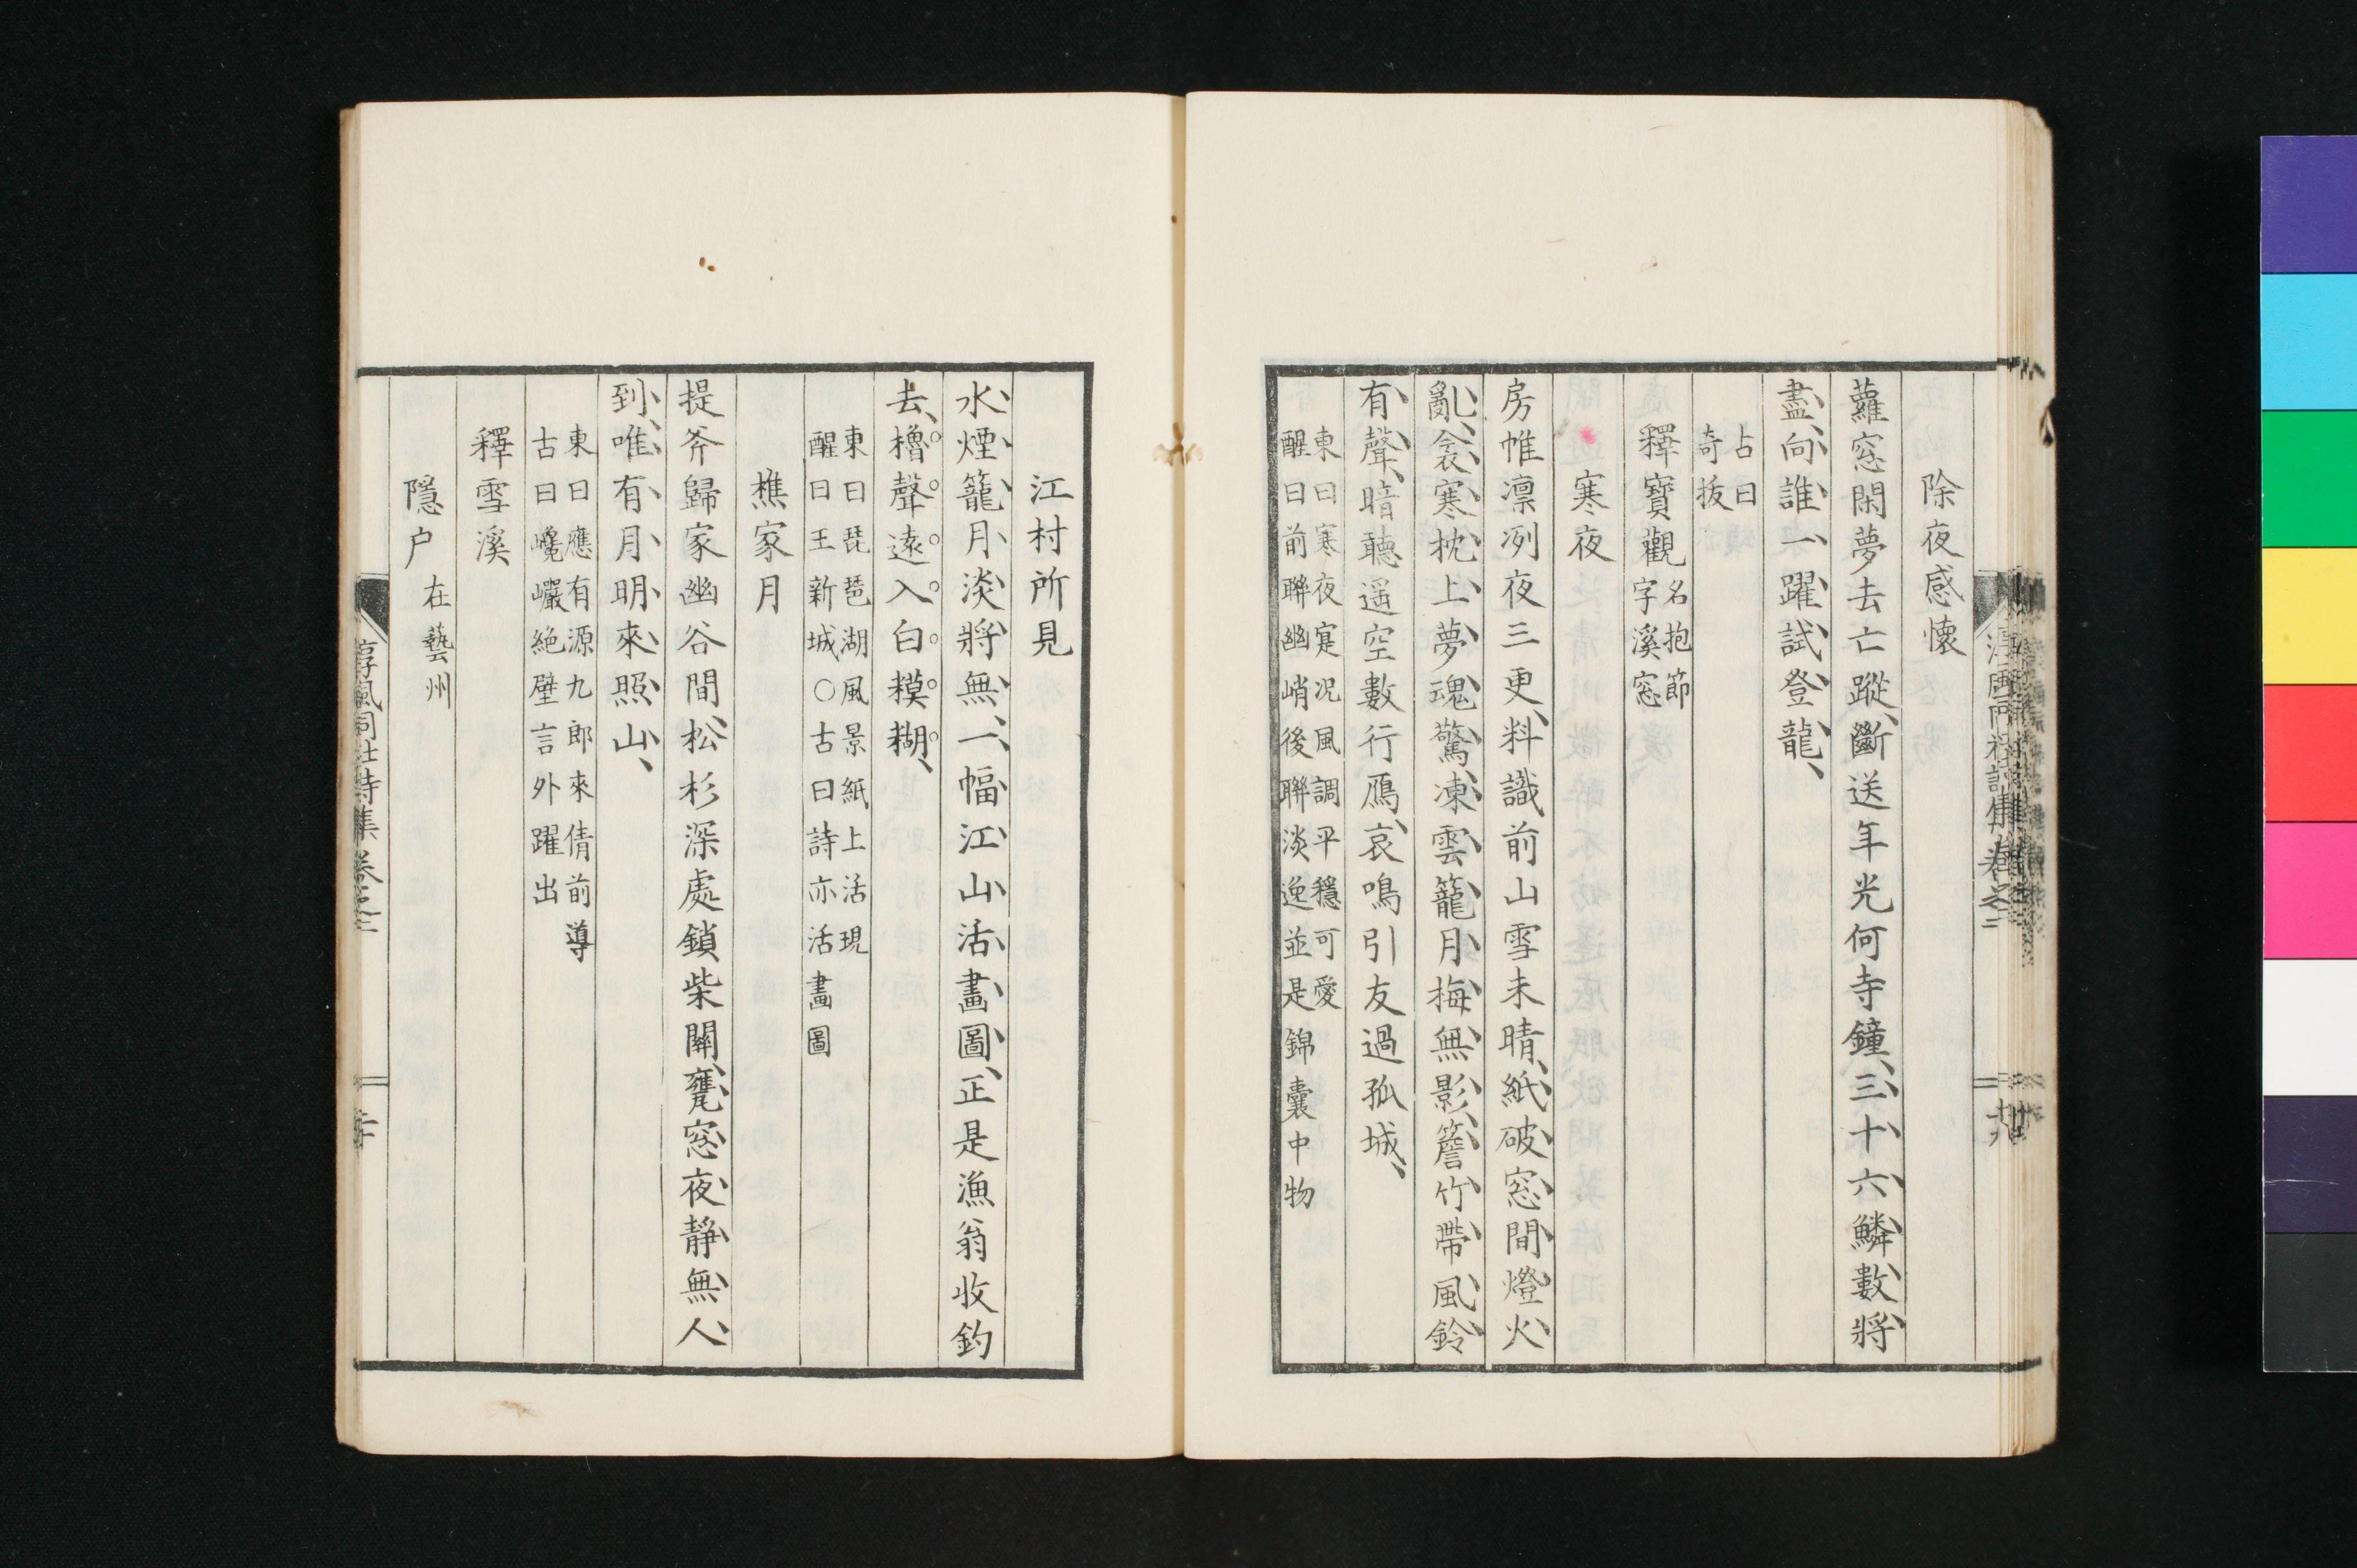 除夜感懷
蘿窓閑夢去亡蹤、斷送年光何寺鐘、三、十、六、鱗、數、將、
盡、向、誰、一、躍、試、登、龍、
占曰
奇拔
釋寶觀 名抱節
字溪窓
寒夜
房帷凛冽夜三更、料識前山雪未晴、紙、破、窓、間、燈、火、
亂、衾、寒、枕、上、夢、魂、驚、凍、雲、籠、月、梅、無、影、簷、竹、帶、風、鈴、
有、聲、暗聽遥空數行鴈、哀鳴引友過孤城、
東曰寒夜寔况風調平穩可愛
醒曰前聯幽峭後聯淡逸並是錦囊中物
江村所見
水、煙、籠、月、淡、將、無、一、幅、江、山、活、畫、圖、正是漁翁收釣
去、櫓。聲。遠。入。白。糢。糊。
東曰琵琶湖風景紙上活現
醒曰王新城○古曰詩亦活畫圖
樵家月
提斧歸家幽谷間、松杉深處鎖柴關、甕、窓、夜、靜、無、人、
到、唯、有、月、明、來、照、山、
東曰應有源九郎來倩前導
古曰巉巖絶壁言外躍出
釋雪溪
隱户 在藝州
淳風同社詩集 卷之二